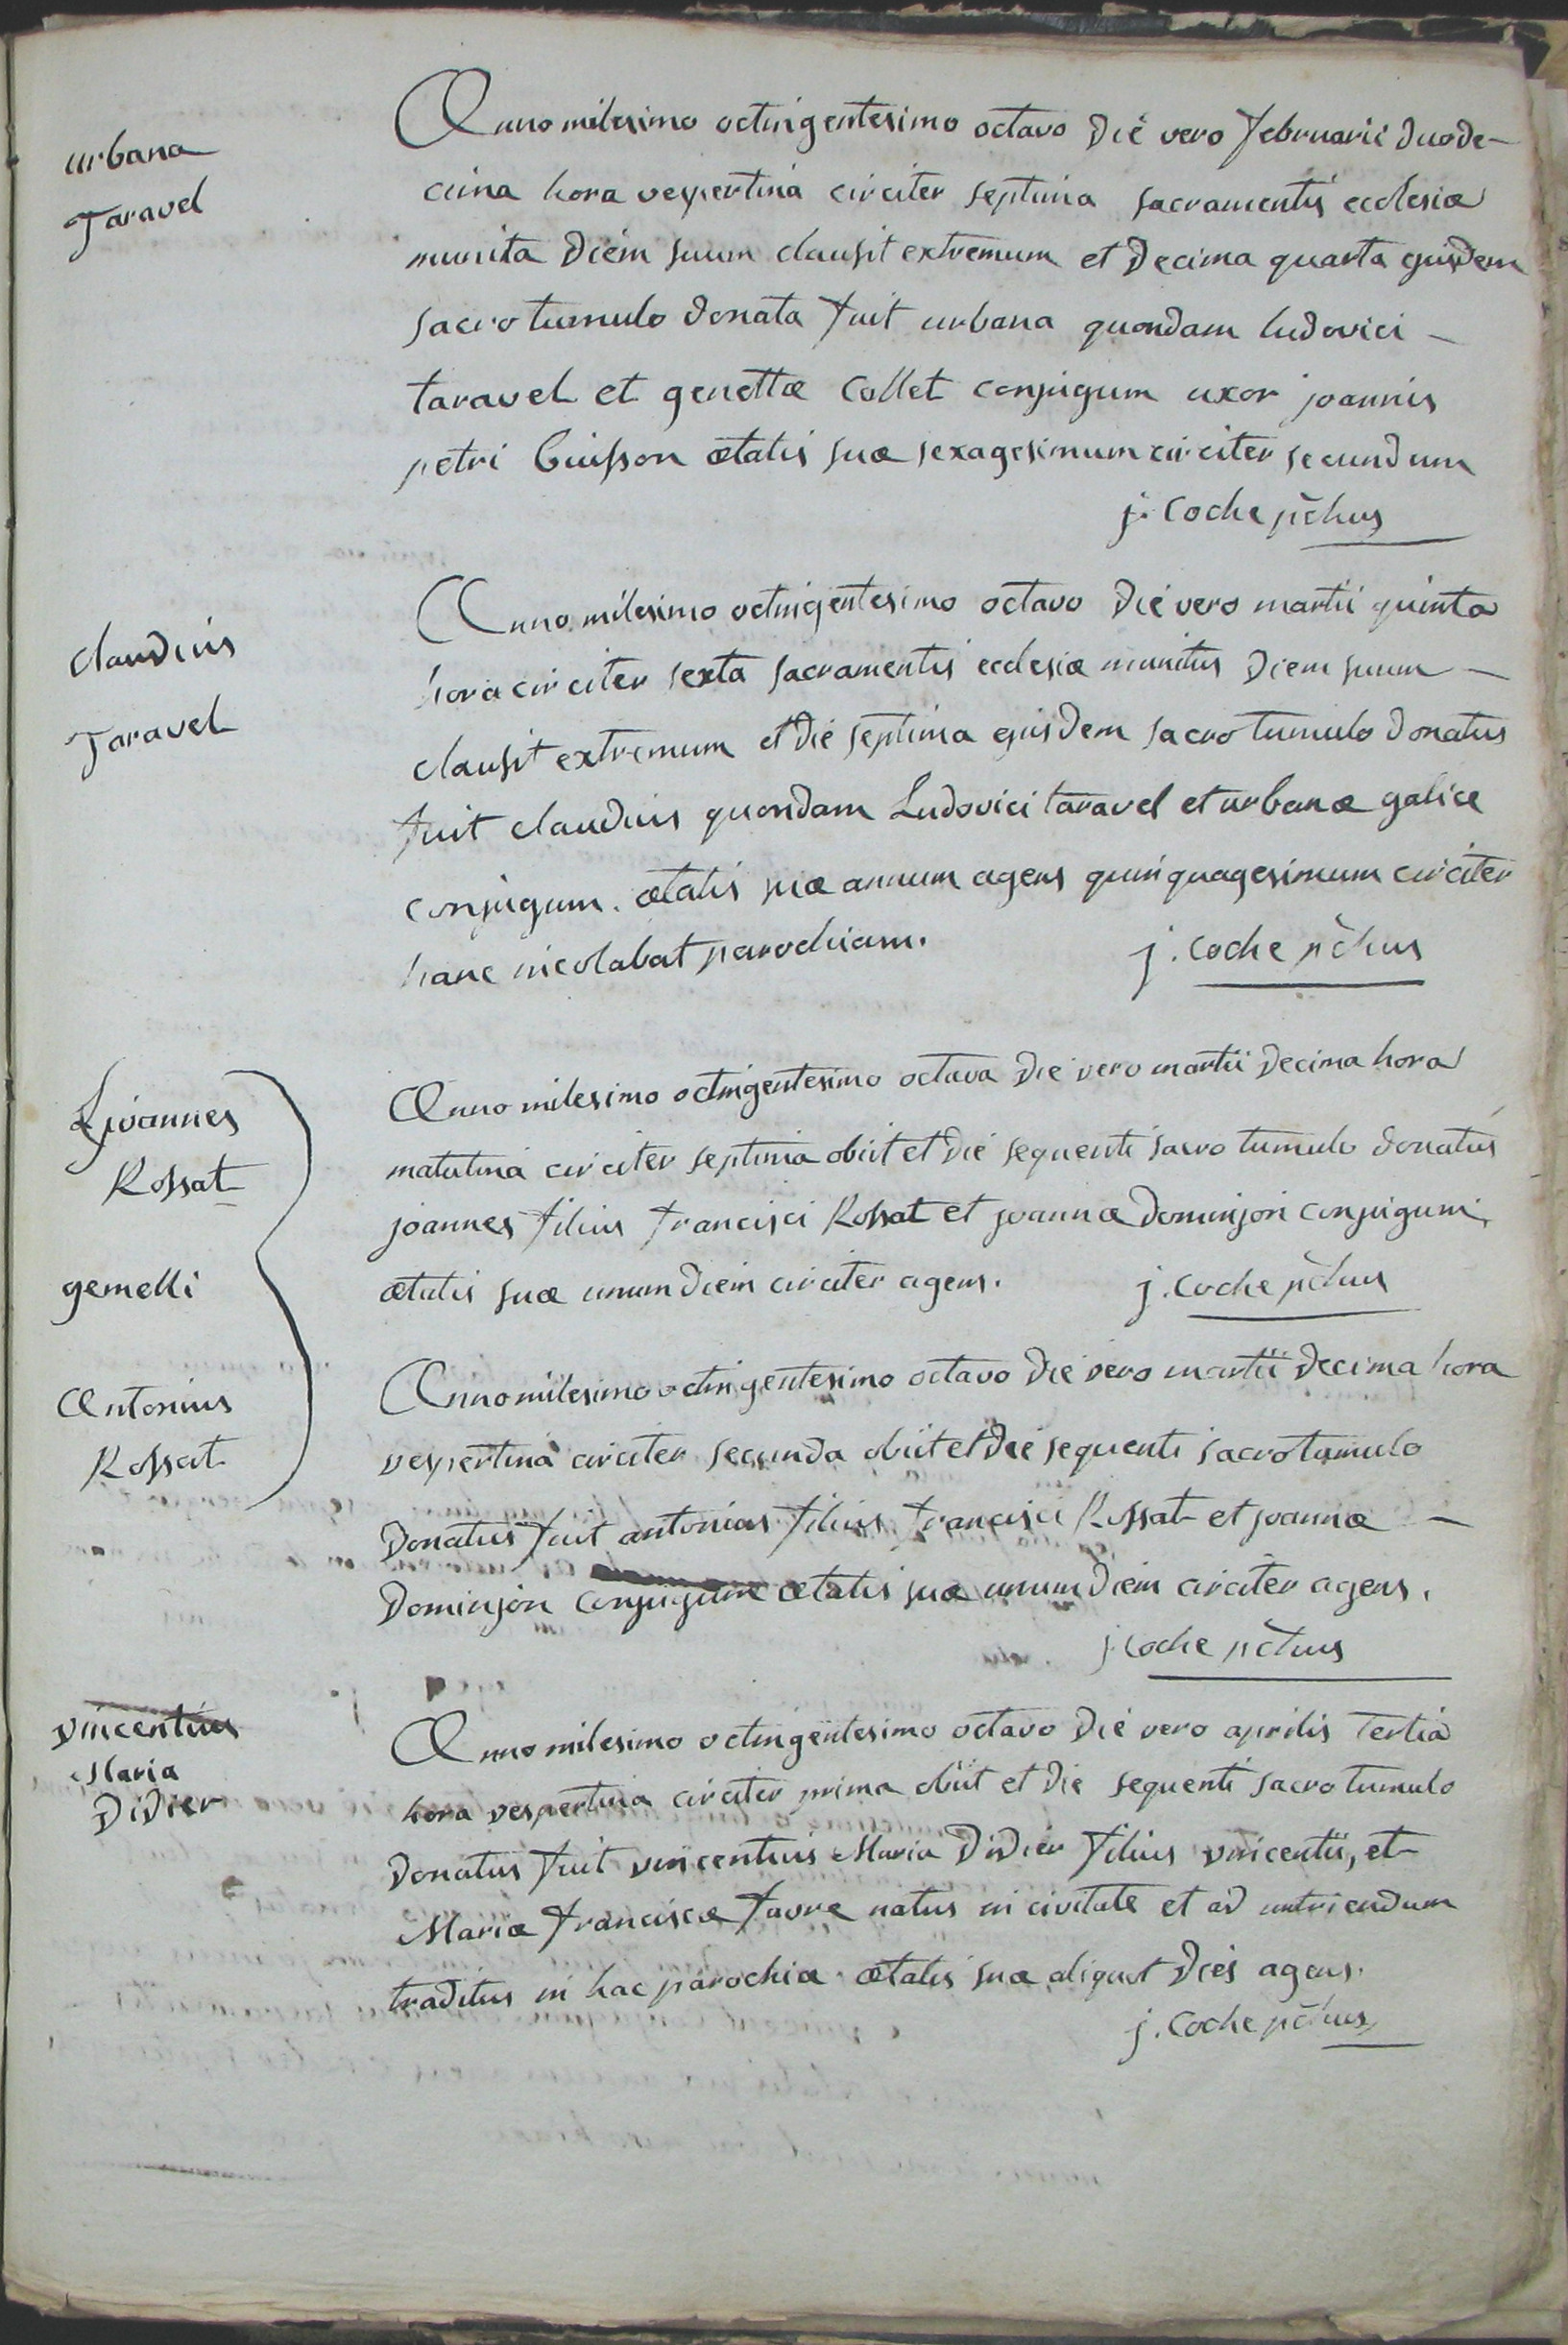 urbana
Taravel
Anno milesimo octingentesimo octavo die vero februarii duode-
cima hora vespertina circiter septima sacramentis ecclesiæ
munita diem suum clausit extremum et decima quarta ejusdem
sacro tumulo donata fuit urbana quondam ludovici -
taravel et genettæ Collet conjugum uxor joannis
petri buisson ætatis suæ sexagesimum circiter secundum
j. Coche pc̃hus
claudius
Taravel
Anno milesimo octingentesimo octavo die vero martii quinta
hora circiter sexta sacramentis ecclesiæ munitus diem suum -
clausit extremum et die septima ejusdem sacro tumulo donatus
fuit claudius quondam Ludovici taravel et urbanæ galice
conjugum. ætatis suæ annum agens quinquagesimum circiter
hanc incolabat parochiam. j. coche pc̃hus
joannes
Rossat
gemelli
Antonius
Rossat
Anno milesimo octingentesimo octava die vero martii decima hora
matutina circiter septima obiit et die sequenti sacro tumulo donatus
joannes filius francisci Rossat et joannæ dominjon conjugum,
ætatis suæ unum diem circiter agens. j. coche pc̃hus
Anno milesimo octingentesimo octavo die vero martii decima hora
vespertina circiter secunda obiit et die sequenti sacro tumulo
donatus fuit antonius filius francisci Rossat et joannæ -
dominjon conjugum ætatis suæ unum diem circiter agens.
j. coche pc̃hus
vincentius
Maria
Didier
Anno milesimo octingentesimo octavo die vero aprilis tertia
hora vespertina circiter prima obiit et die sequenti sacro tumulo
donatus fuit vincentius Maria Didier filius vincentii, et
Mariæ franciscæ favre natus in civitate et ad nutriendum
traditus in hac parochia ætatis suæ aliquot dies agens.
j. coche pc̃hus